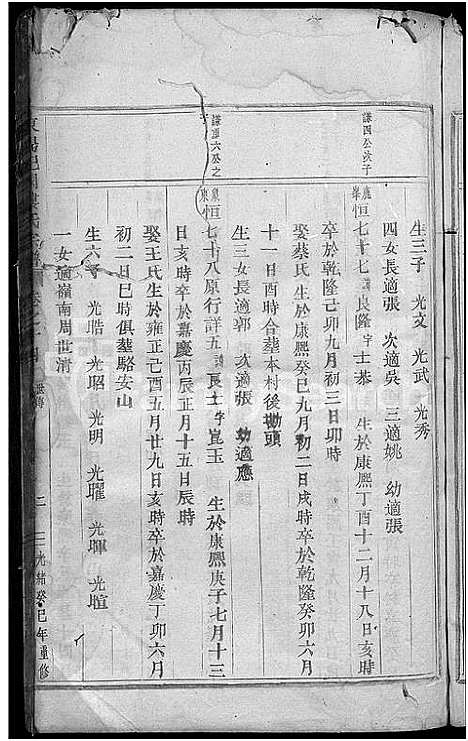 謙四公次子
生三子 光文 光武 光秀
四女長適張 次適吳 三適姚 幼適張
恒七十七諱良隆字士恭 生於康熙丁酉十二月十八日亥時
卒於乾隆己卯九月初三日卯時
娶蔡氏生於康熙癸巳九月初二日戌時卒於乾隆癸卯六月
十一日酉時合塟本村後塘頭
生三女長適郭 次適張 幼適應
謙六公之子
恒七十八原行詳五諱良士字崑玉 生於康熙庚子七月十三
日亥時卒於嘉慶丙辰正月十五日辰時
娶王氏生於雍正己酉五月廿九日亥時卒於嘉慶丁卯六月
初二日巳時俱塟駱安山
生六子 光晧 光昭 光明 光曜 光暉 光暄
一女適嶺南周世清
二 光緒癸巳年重修